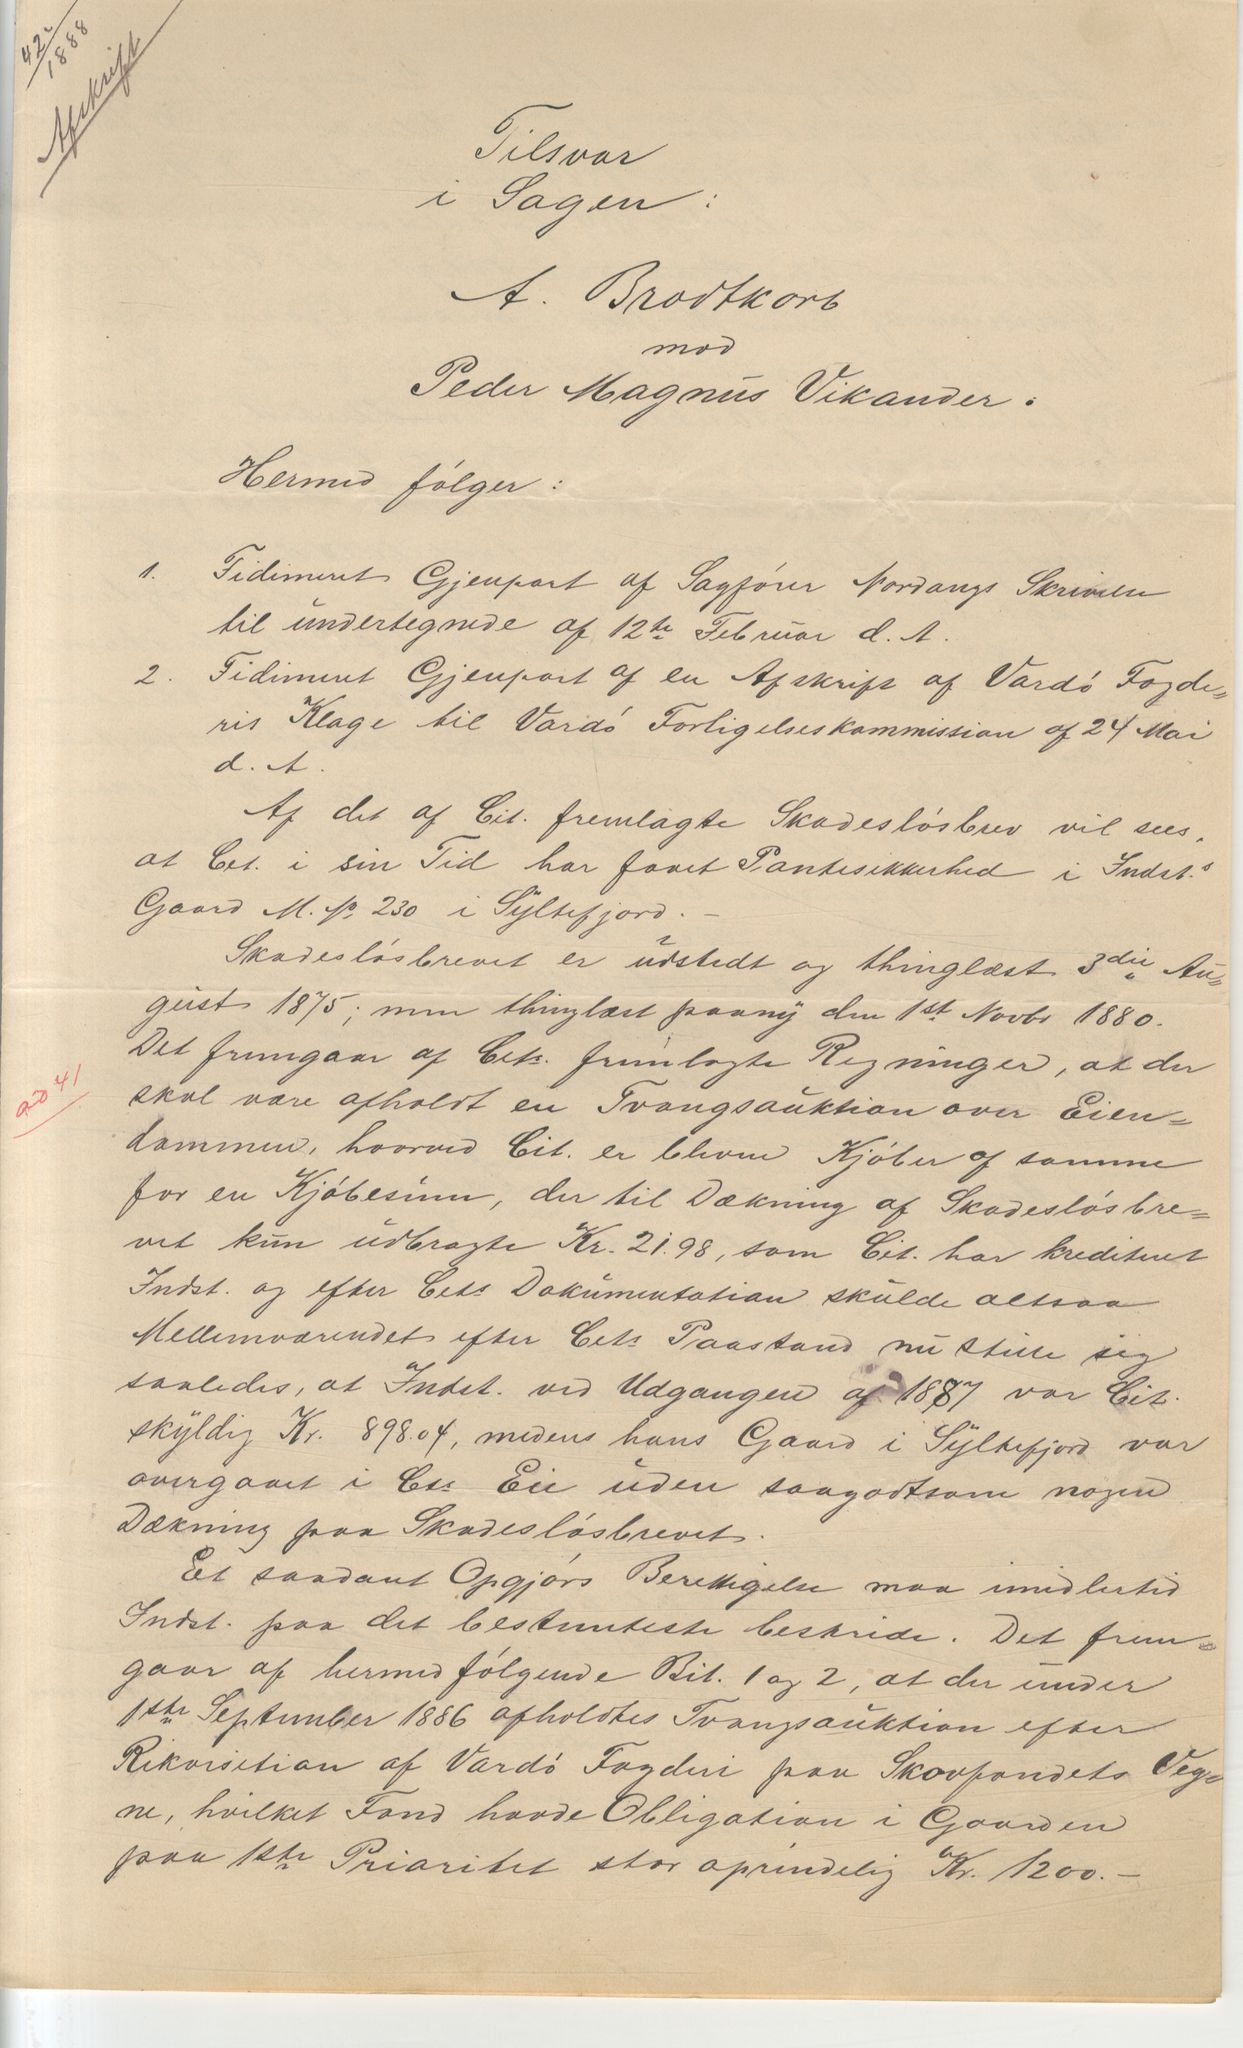 42
1888
Afskrift
Tilsvar
i Sagen:
A. Brodtkorb
mod
Peder Magnus Vikander.
Hermed følger:
1. Fidimeret Gjenpart af Sagfører Nordangs Skrivelse
til undertegnede af 12te Februar d. A.
2. Fidimeret Gjenpart af en Afskrift af Vardø Fogde=
ris Klage til Vardø Forligelseskommission af 24 Mai
d. A.
Af det af Cit. fremlagte Skadesløsbrev vil sees,
at Cit. i sin Tid har faaet Pantesikkerhed i Indst.s
Gaard M. No. 230 i Syltefjord. –
Skadesløsbrevet er udstedt og thinglæst 3die Au=
gust 1875; men thinglæst paany den 1st Novbr 1880.
Det fremgaar af Cits. fremlagte Regninger, at der
ad 41
skal være afholdt en Tvangsauktion over Eien=
dommen, hvorved Cit. er bleven Kjøber af samme
for en Kjøbesum, der til Dækning af Skadesløsbre=
vet kun udbragte Kr. 21.98, som Cit. har krediteret
Indst. og efter Cits Dokumentation skulde altsaa
Mellemværendet efter Cits Paastand nu stille sig
saaledes, at Indst. ved Udgangen af 1887 var Cit.
skyldig Kr. 898.04, medens hans Gaard i Syltefjord var
overgaaet i Cits Eie uden saagodtsom nogen
Dækning paa Skadesløsbrevet.
Et saadant Opgjørs Berettigelse maa imidlertid
Indst. paa det bestemteste bestride. Det frem=
gaar af hermed følgende Bil. 1 og 2, at der under
1ste September 1886 afholdtes Tvangsauktion efter
Rikvisition af Vardø Fogderi paa Skovfondets Veg=
ne, hvilket Fond havde Obligation i Gaarden
paa 1ste Prioritet stor oprindelig Kr. 1200. –